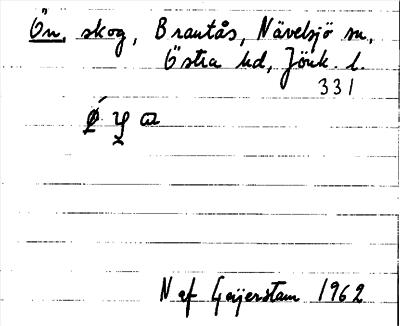 Ön, skog, Brantås, Nävelsjö sn,
Östra hd, Jönk. l.
331
N af Geijerstam 1962